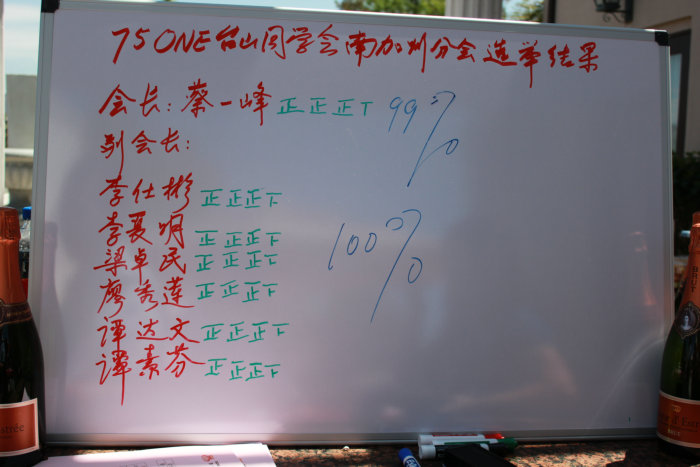 75 ONE 台山同学会南加州分会选举结果
会长：蔡一峰 正正正丅 99%
副会长：
李仕彬 正正正下
李夏明 正正正下
100%
梁卓民 正正正下
廖秀莲 正正正下
谭达文 正正正下
谭素芬 正正正下